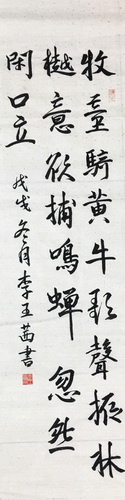 牧童騎黃牛歌聲振林
樾意欲捕鳴蟬忽然
閑口立
戊戌冬月李玉茜書